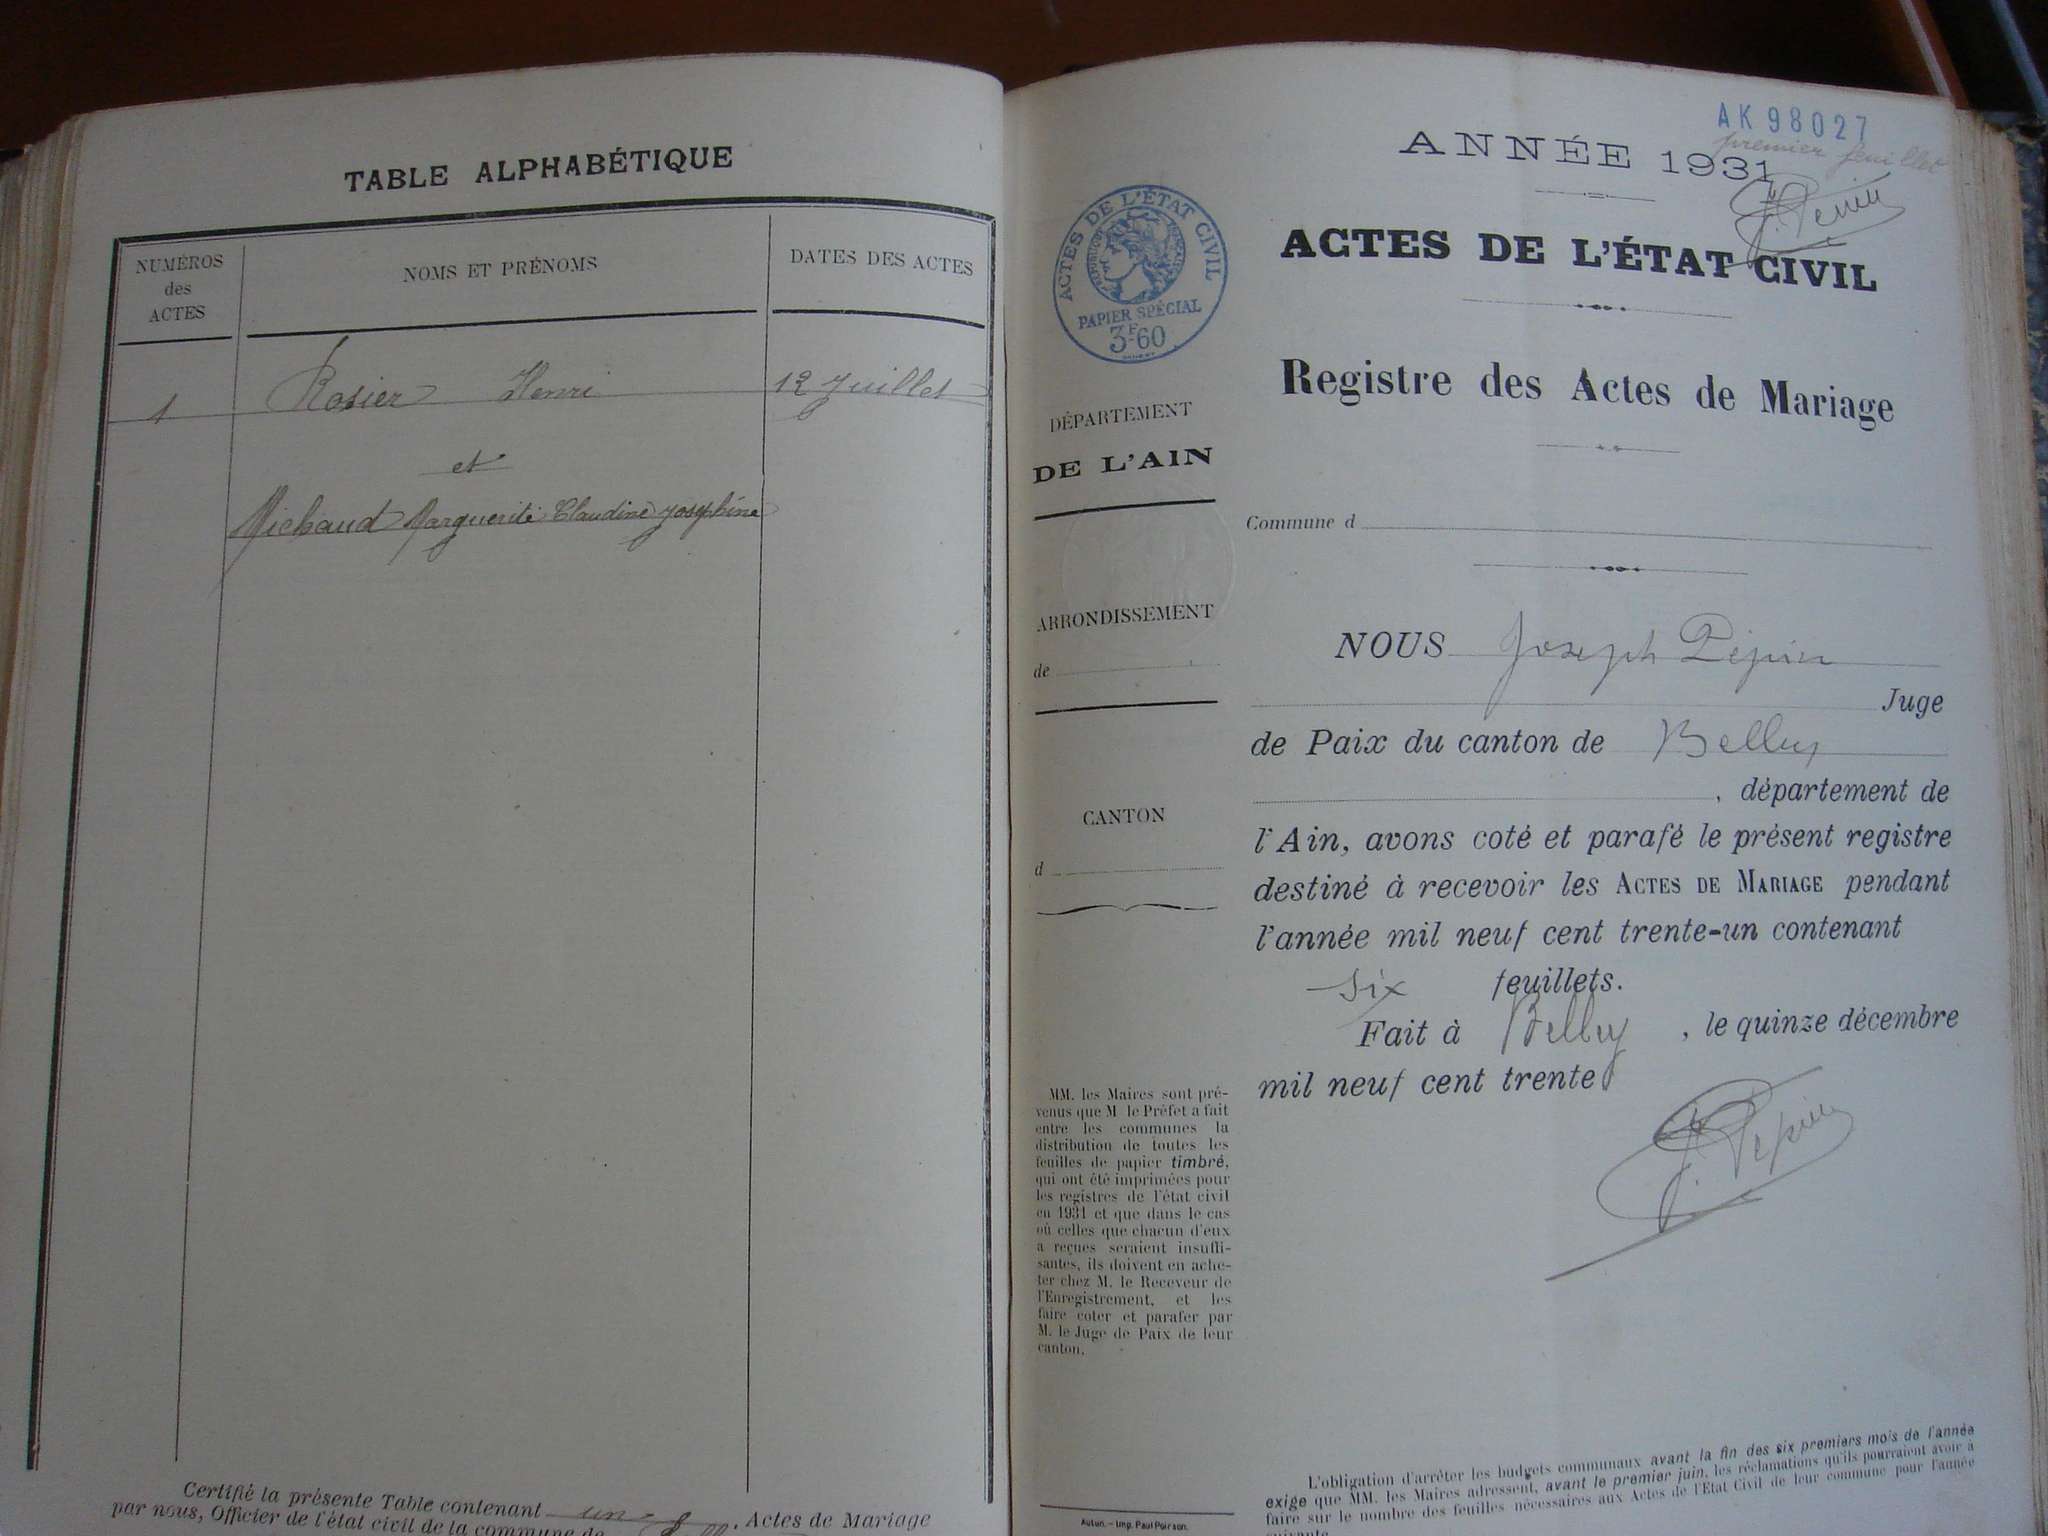 TABLE ALPHABÉTIQUE
NUMÉROS
des
ACTES
NOMS ET PRÉNOMS
DATES DES ACTES
1 Rosier Henri 12 Juillet
et
Michaud Marguerite Claudine Joséphine
Certifié la présente Table contenant un Actes de Mariage
par nous, Officier de l'état civil de la commune de
AK 98027
premier feuillet
ANNÉE 1931
J. Pepin
ACTES DE L'ÉTAT CIVIL
ACTES DE L'ÉTAT CIVIL
RÉPUBLIQUE FRANÇAISE
PAPIER SPÉCIAL
3F60
Registre des Actes de Mariage
DÉPARTEMENT
DE L'AIN
Commune d
ARRONDISSEMENT
de
CANTON
d
NOUS Joseph Pépin
Juge
de Paix du canton de Belley
, département de
l'Ain, avons coté et parafé le présent registre
destiné à recevoir les ACTES DE MARIAGE pendant
l'année mil neuf cent trente-un contenant
six feuillets.
Fait à Belley, le quinze décembre
mil neuf cent trente
J. Pepin
MM. les Maires sont pré-
venus que M le Préfet a fait
entre les communes la
distribution de toutes les
feuilles de papier timbré,
qui ont été imprimées pour
les registres de l'état civil
en 1931 et que dans le cas
où celles que chacun d'eux
a reçues seraient insuffi-
santes, ils doivent en ache-
ter chez M. le Receveur de
l'Enregistrement, et les
faire coter et parafer par
M. le Juge de Paix de leur
canton.
Autun. - Imp. Paul Poirson.
L'obligation d'arrêter les budgets communaux avant la fin des six premiers mois de l'année
exige que MM. les Maires adressent, avant le premier juin, les réclamations qu'ils pourraient avoir à
faire sur le nombre des feuilles nécessaires aux Actes de l'État Civil de leur commune pour l'année
suivante.